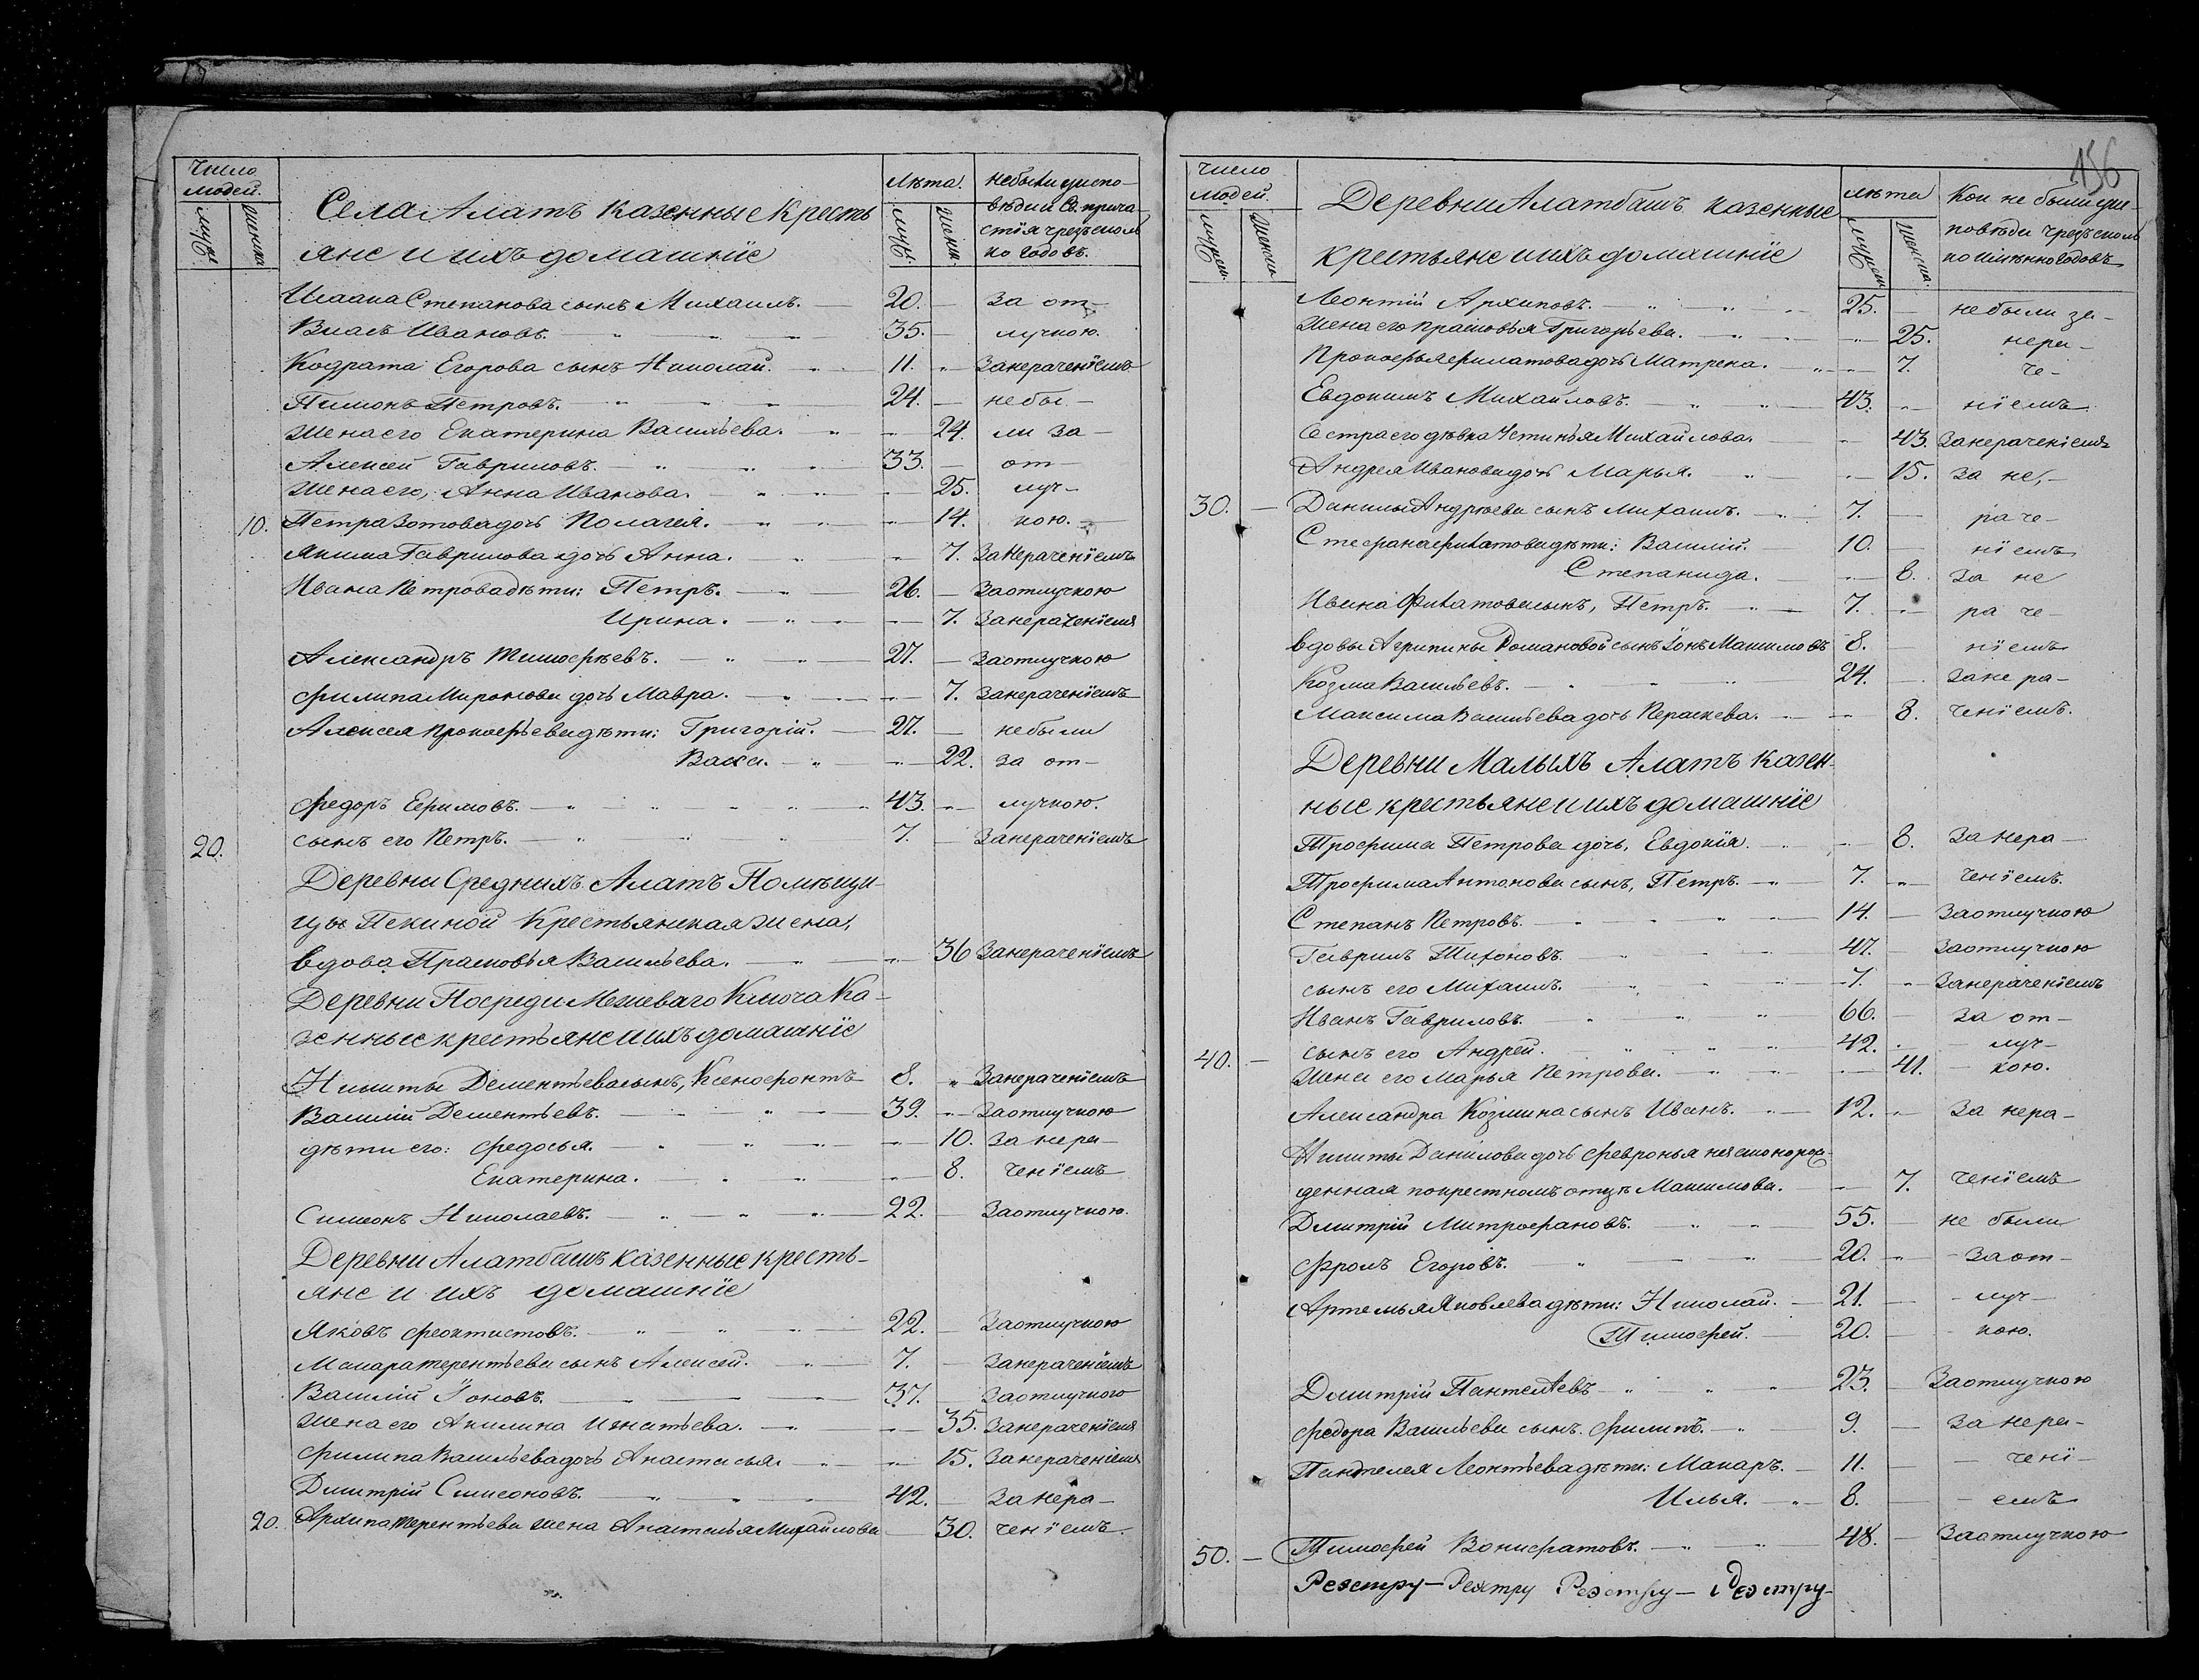 Число людей.
мужс. женска
Лѣта.
мужс. женск.
небыли уиспо-
вѣди и Св. прича-
стія чрезъ сколь
ко годовъ.
Села Алатъ казенные кресть
яне и ихъ домашніе
Исаака Степанова сынъ Михаилъ. 20. за от-
Власъ Ивановъ. 35. лучкою.
Кодрата Егорова сынъ Николай. 11. Занераченіемъ
Пимонъ Петровъ. 24. небы-
Жена его Екатерина Васильева. 24. ли за-
Алексей Гавриловъ. 33. от-
Жена его, Анна Иванова. 25. луч-
10. Петра Зотова дочь Полагея. 14. кою.
Якима Гаврилова дочь Анна. 7. Занераченіемъ
Ивана Петрова дѣти: Петръ. 26. Заотлучкою
Ирина. 7. Занераченіемъ
Александръ Тимофѣевъ. 27. Заотлучкою
Филипа Миронова дочь Мавра. 7. Занераченіемъ
Алексея Прокофьева дѣти: Григорій. 27. небыли
Васса. 22. за от-
Федоръ Ефимовъ. 43. лучкою.
20. сынъ его Петръ. 7. Занераченіемъ
Деревни Среднихъ Алатъ Помѣщи-
цы Пекиной Крестьянская жена,
вдова Прасковья Васильева. 36 Занераченіемъ
Деревни Посреди Межеваго Ключа Ка-
зенные крестьяне и ихъ домашніе
Никиты Дементьева сынъ, Ксенофонтъ 8. Занераченіемъ
Василій Дементьевъ. 39. Заотлучкою
дѣти его: Федосья. 10. За нера-
Екатерина. 8. ченіемъ
Симеонъ Николаевъ. 22. Заотлучкою.
Деревни Алатбашъ казенные кресть-
яне и ихъ домашніе
Яковъ Феоктистовъ. 22. Заотлучкою
Макара Терентьева сынъ Алексей. 7. Занераченіемъ
Василій Іоновъ. 37. Заотлучкою
Жена его Акилина Игнатьева. 35. Занераченіемъ
Филипа Васильева дочь Анастасья. 15. Занераченіемъ
Дмитрій Симеоновъ. 42. За нера-
20. Архипа Терентьева жена Анастасья Михайлова 30. ченіемъ.
156
Число людей.
мужеск. женска
лѣта
мужеск. женска.
Кои не были уис-
повѣди чрезъ сколь
ко имянно годовъ
Деревни Алатбашъ казенные
крестьяне и ихъ домашніе
Леонтій Архиповъ. 25. небыли за-
Жена его Прасковья Григорьева. 25. нера-
Прокофья Филатова дочь Матрена. 7. че-
Евдокимъ Михайловъ. 43. ніемъ
Сестра его дѣвка Устинья Михайлова. 43. Занераченіемъ
Андрея Иванова дочь Марья. 15. За не,-
30. Данилы Андрѣева сынъ Михаилъ. 7. раче-
Стефана Филатова дѣти: Василій. 10. ніемъ
Степанида. 8. За не
Ивана Филатова сынъ, Петръ. 7. ра че-
вдовы Агрипины Романовой сынъ Іонъ Максимовъ 8. ніемъ
Козма Васильевъ. 24. Зане ра-
Максима Васильева дочь Параскева. 8. ченіемъ.
Деревни Малыхъ Алатъ казен-
ные крестьяне и ихъ домашніе
Трофима Петрова дочь, Евдокія. 8. За нера-
Трофима Антонова сынъ, Петръ. 7. ченіемъ.
Степанъ Петровъ. 14. Заотлучкою
Гаврилъ Тихоновъ. 47. Заотлучкою
сынъ его Михаилъ. 7. Занераченіемъ
Иванъ Гавриловъ. 66. За от-
40. сынъ его Андрей. 42. луч-
Жена его Марья Петрова. 41. кою.
Александра Козмина сынъ Иванъ. 12. За нера-
Никиты Данилова дочь Февронья незаконорож-
денная покрестномъ отцѣ Максимова. 7. ченіемъ
Дмитрій Митрофановъ. 55. не были
Фролъ Егоровъ. 20. За от-
Артемья Яковлева дѣти: Николай. 21. луч-
Тимофей. 20. кою.
Дмитрій Пантелѣевъ 23. Заотлучкою
Федора Васильева сынъ Филипъ. 9. За нера-
Пантелея Леонтьева дѣти: Макаръ. 11. чені-
Илья. 8. емъ
50. Тимофей Вонифатовъ. 48. Заотлучкою
Реэстру- Реэстру Реэстру- Реэстру-